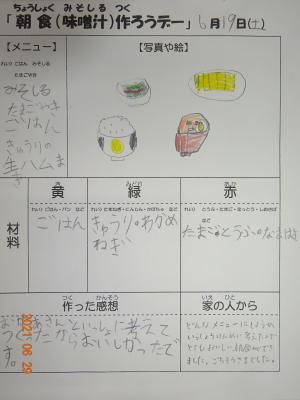 ちょうしょく みそしる つく
「朝食(味噌汁)作ろうデー」6月19日(土)
【メニュー】
【写真や絵】
れい) ごはん みそしる
たまごやき
みそしる
たまごやき
ごはん
きゅうりの
生ハムま
き
黄
緑
赤
材料
ごはん
きゅうり。わかめ
ねぎ
たまご。とうふ。なまはむ
作った感想
家の人から
おかあさんといっしょに考えて
つくったからおいしかったで
す。
どんなメニューにしようか
いっしょうけんめいに考えたので
とてもおいしい朝食ができ
ました。ごちそうさまでした。
2021 06 29